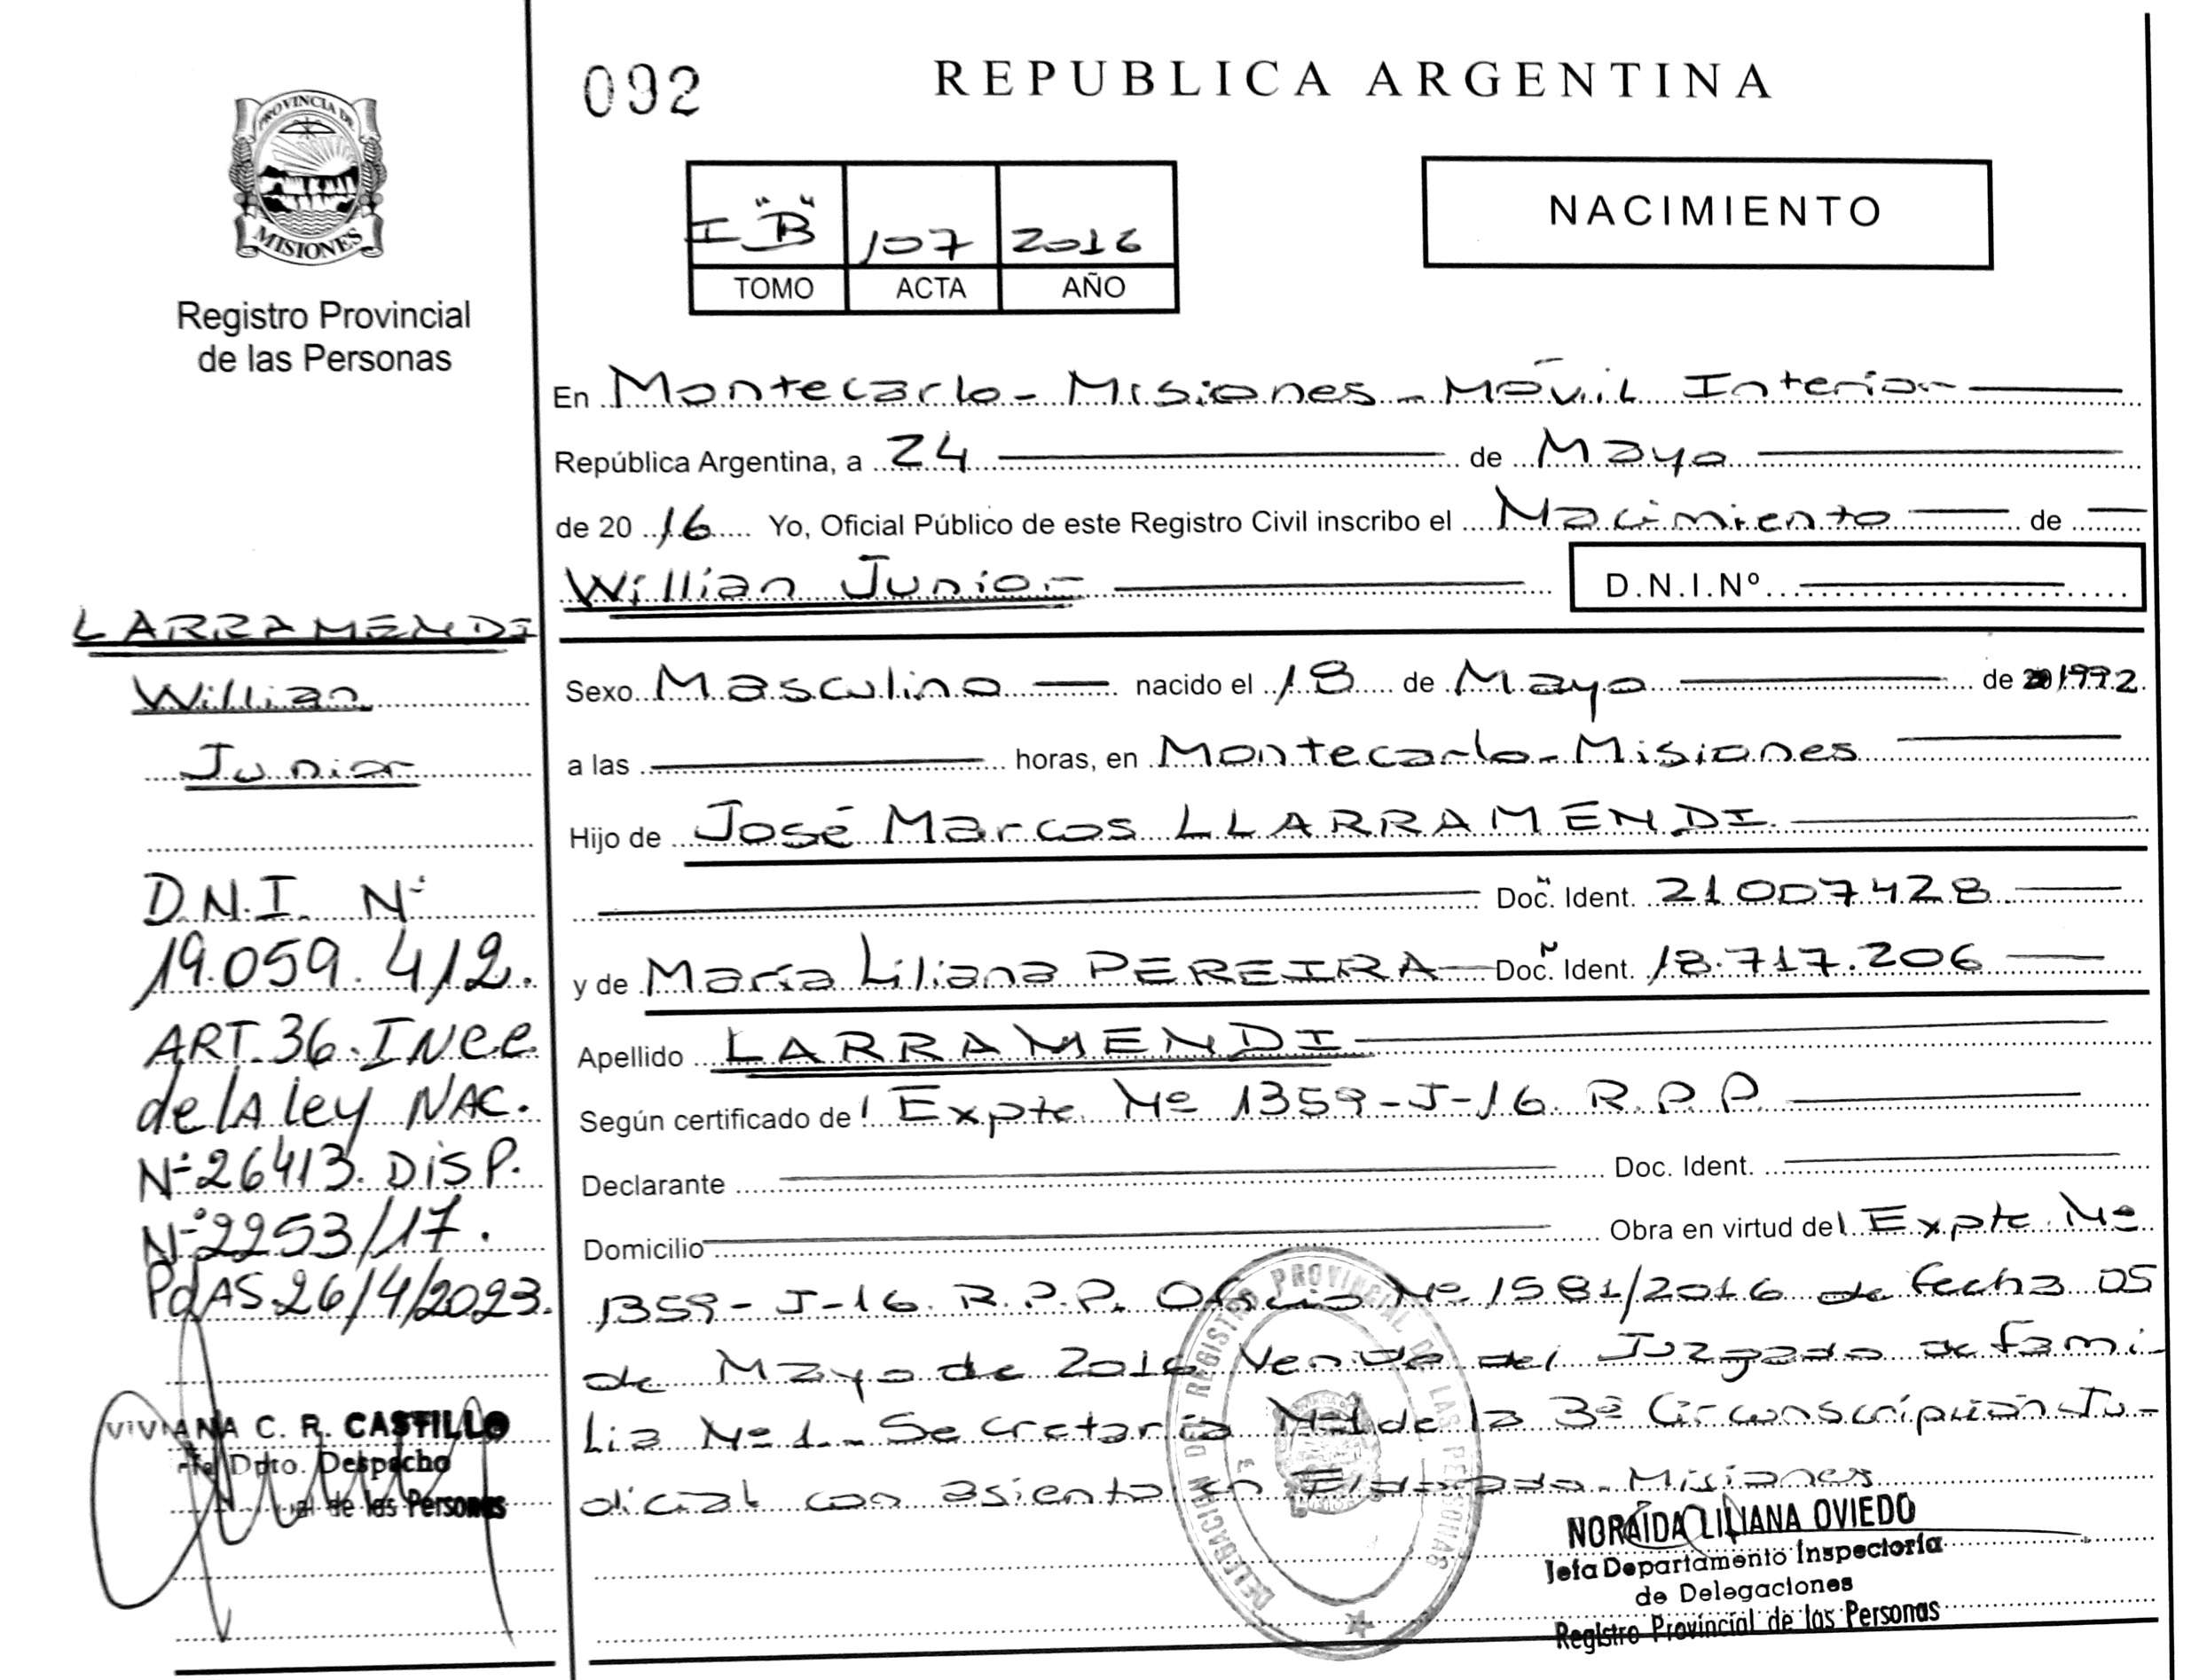 PROVINCIA DE
MISIONES
Registro Provincial
de las Personas
LARRAMENDI
Willian
Junior
D.N.I. Nº
19.059.412.
ART. 36. INCC
de lA ley NAC.
Nº 26413. DISP.
Nº 2253/17.
PdAS. 26/4/2023.
VIVIANA C. R. CASTILLO
Dpto. Despacho
de las Personas
092
REPUBLICA ARGENTINA
I "B" 107 2016
TOMO ACTA AÑO
NACIMIENTO
En Montecarlo - Misiones - Móvil Interior
República Argentina, a 24 de Mayo
de 2016 Yo, Oficial Público de este Registro Civil inscribo el Nacimiento de
Willian Junior D.N.I.Nº
Sexo Masculino nacido el 18 de Mayo de 20 1992
a las horas, en Montecarlo - Misiones
Hijo de José Marcos LLARRAMENDI
Doc. Ident. 21007428
y de María Liliana PEREIRA Doc. Ident. 18.717.206
Apellido LARRAMENDI
Según certificado del Expte. Nº 1359-J-16. R.P.P.
Declarante Doc. Ident.
Domicilio Obra en virtud del Expte. Nº
1359-J-16. R.P.P. Oficio Nº 1581/2016 de fecha 05
de Mayo de 2016 Venido del Juzgado de fami-
lia Nº 1.- Secretaría Nº 1 de la 3ª Circunscripción Ju-
dicial con asiento en Eldorado - Misiones
DELEGACION DEL REGISTRO PROVINCIAL DE LAS PERSONAS
NORAIDA LILIANA OVIEDO
Jefa Departamento Inspectoría
de Delegaciones
Registro Provincial de las Personas